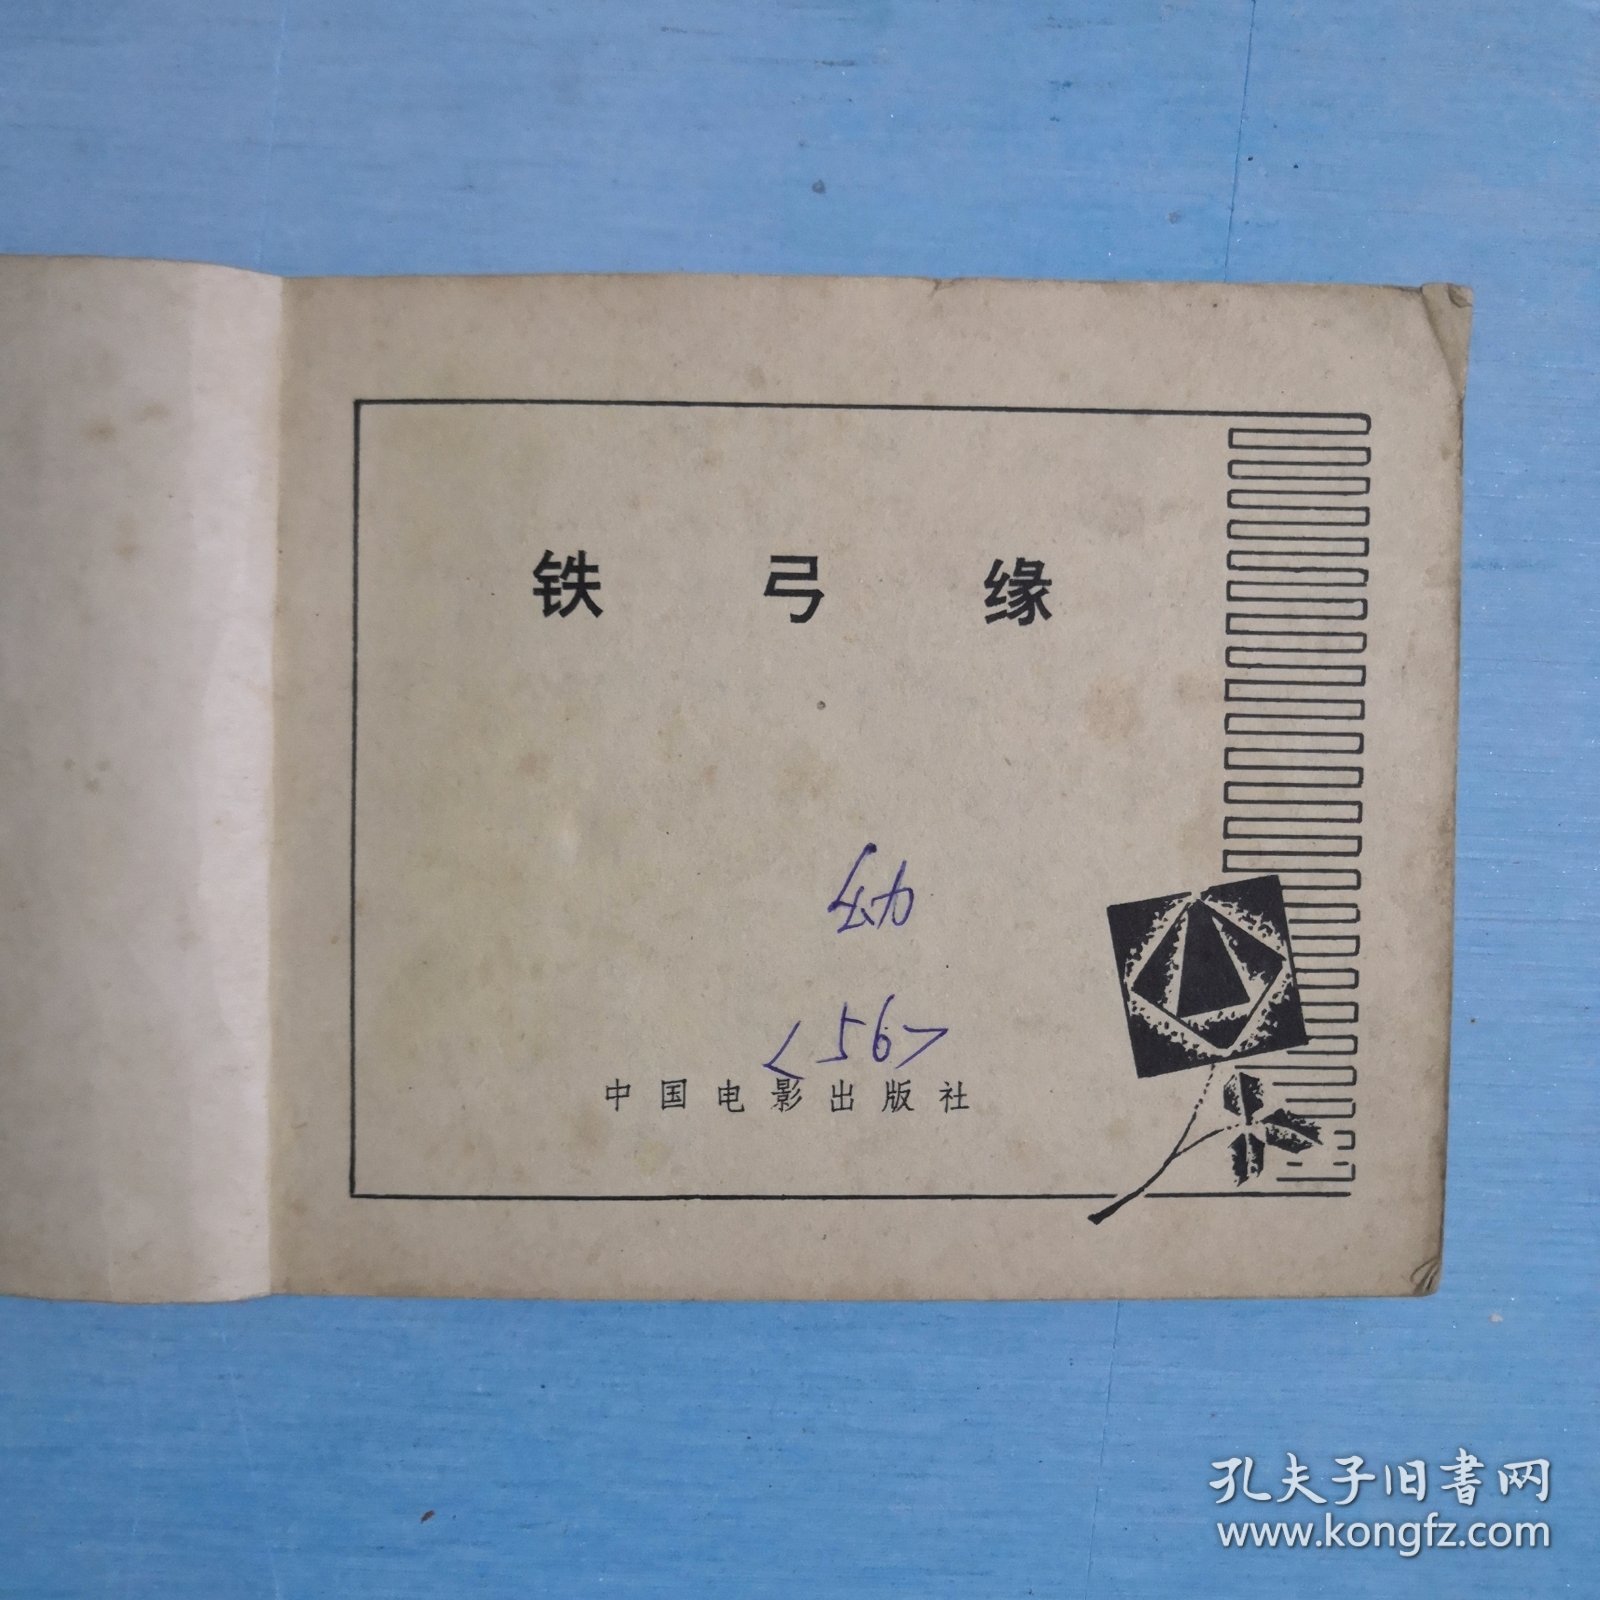 铁弓缘
幼
<56>
中国电影出版社
孔夫子旧书网
www.kongfz.com